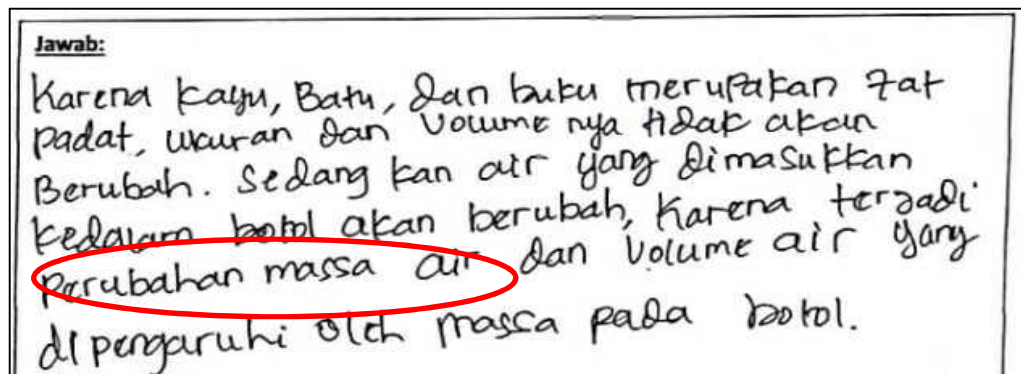 Jawab:
Karena kayu, Batu, dan buku merupakan zat
padat, ukuran dan volume nya tidak akan
Berubah. Sedang kan air yang dimasukkan
kedalam botol akan berubah, Karena terjadi
perubahan massa air dan volume air yang
dipengaruhi oleh massa pada botol.